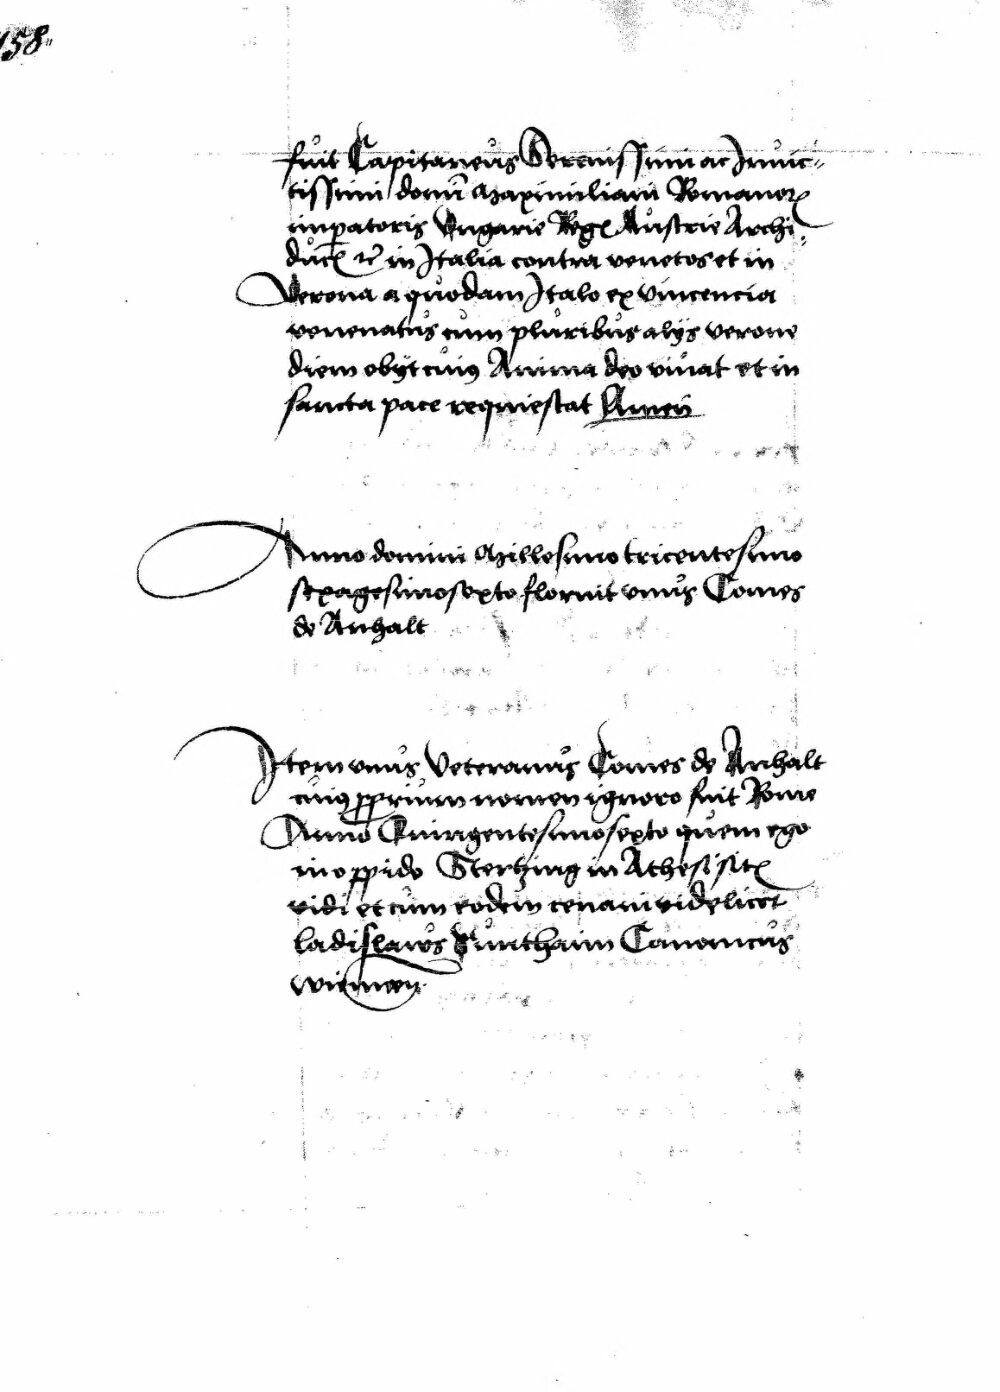 158
fuit Capitaneus Serenissimi ac Invic-
tissimi domini Maximiliani Romanorum
imperatoris Ungarie Regis Austrie Archi-
ducis etc in Italia contra venetos et in
Verona a quodam Italo ex vincencia
venenatus cum pluribus alys verone
diem obyt cuius Anima deo vivat et in
sancta pace requiescat Amen
Anno domini Millesimo tricentesimo
sexagesimosexto floruit unus Comes
de Anhalt
Item unus Veteranus Comes de Anhalt
cuius proprium nomen ignoro fuit Rome
Anno Quingentesimosexto quem ego
in oppido Stertzing in Athesi sito
vidi et cum eodem cenavi videlicet
ladislaus Sunthaim Canonicus
wiennen